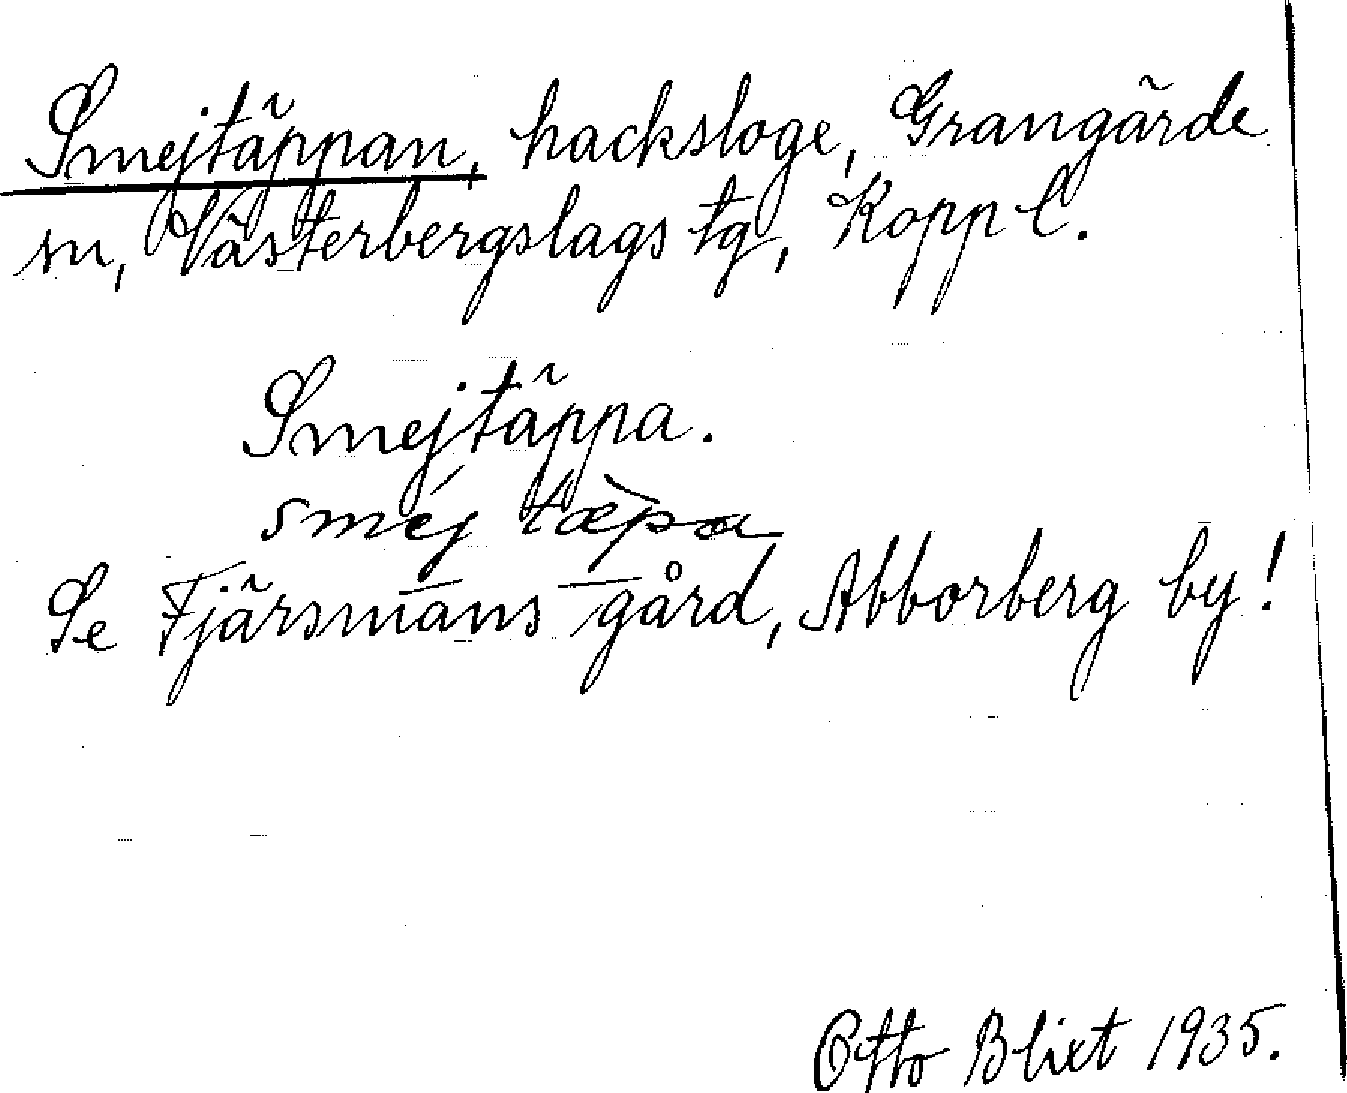 Smejtäppan, hacksloge, Grangärde
sn, Västerbergslags tg, Kopp l.
Smejtäppa.
sméj tæ̀pa
Se Fjärsmans gård, Abborberg by!
Otto Blixt 1935.